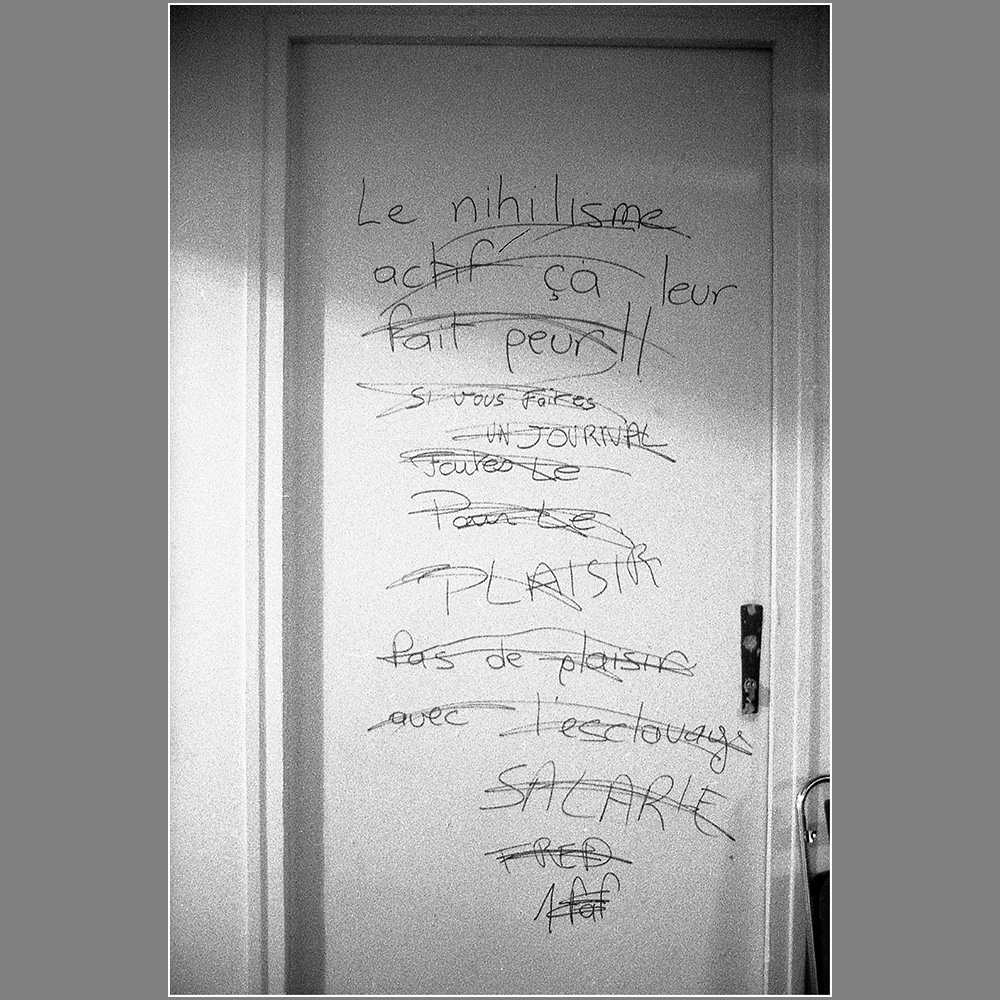 Le nihilisme
actif çà leur
fait peur!!
SI vous FAITES
UN JOURNAL
Faites Le
Pour Le
PLAISIR
Pas de plaisir
avec l'esclavage
SALARIE
FRED